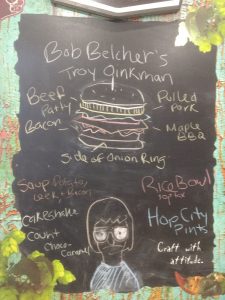 Bob Belcher's
Troy Oinkman
Beef
Patty
Bacon
Pulled
Pork
Maple
BBQ
Side of Onion Ring
Soup Potato,
Leek + Bacon
Cakeshake
Count
Choco-
Caramel
Rice Bowl
Hop City
Pints
Craft with
attitude.